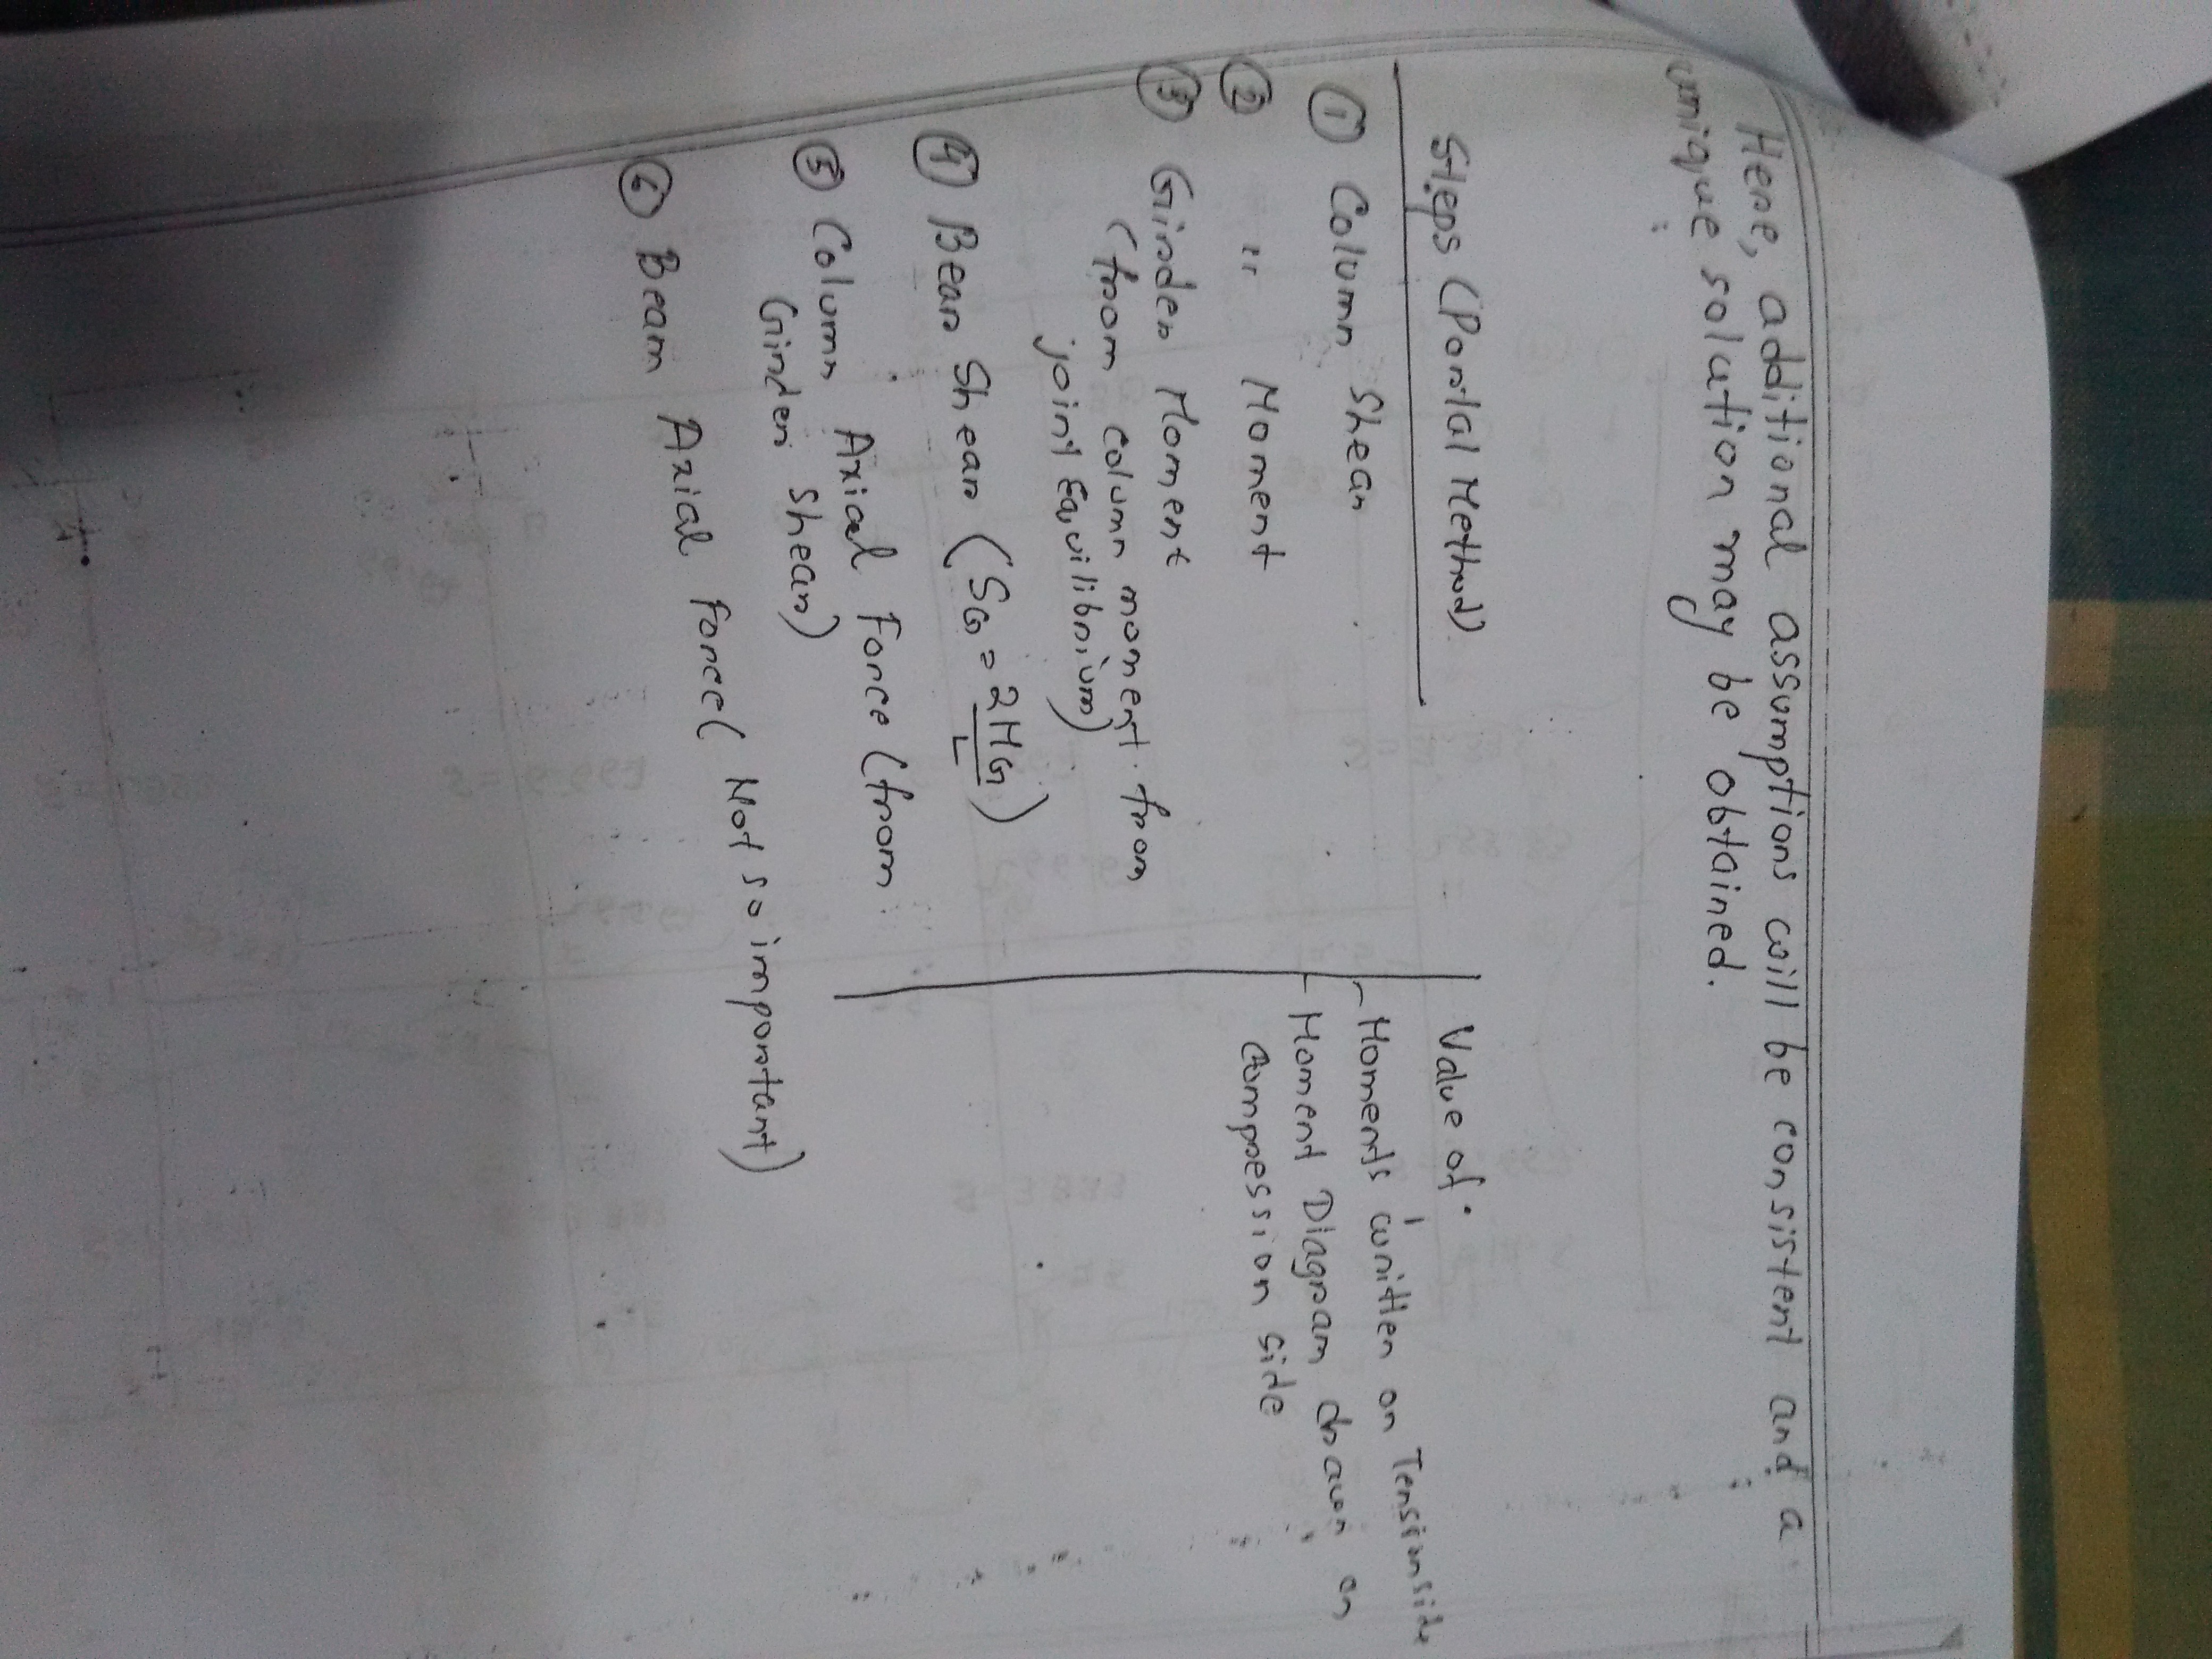 Here, additional assumptions will be consistent and a
unique solution may be obtained.
Steps (Portal Method)
① Column Shear
② " Moment
③ Girder Moment
(from column moment from
joint Equilibrium)
④ Bear Shear (SG = 2MG/L)
⑤ Column Axial Force (from
Girder Shear)
⑥ Beam Axial Force (Not so important)
Value of
- Moments written on Tension side
- Moment Diagram drawn on
compession side